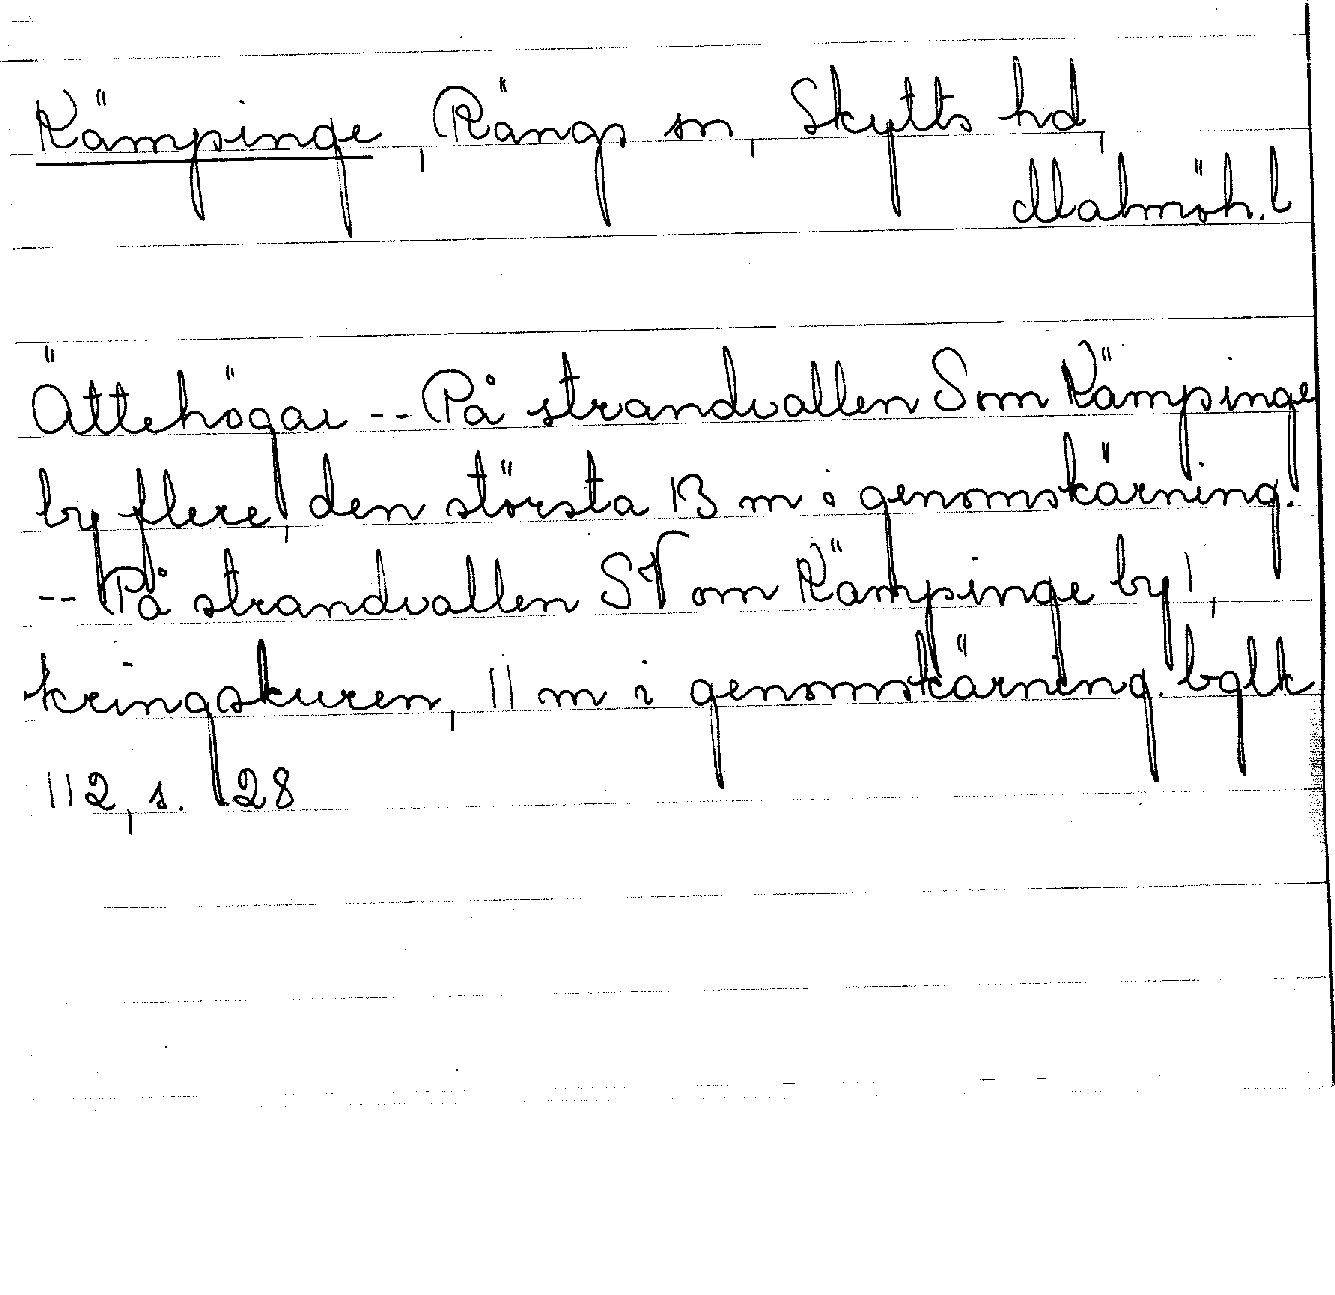 Kämpinge, Rängs sn, Skytts hd,
Malmöh. l
Ättehögar -- På strandvallen S om Kämpinge
by flere, den största 13 m i genomskärning.
-- På strandvallen SV om Kämpinge by 1,
kringskuren, 11 m i genomskärning. bglk
112, s. 128